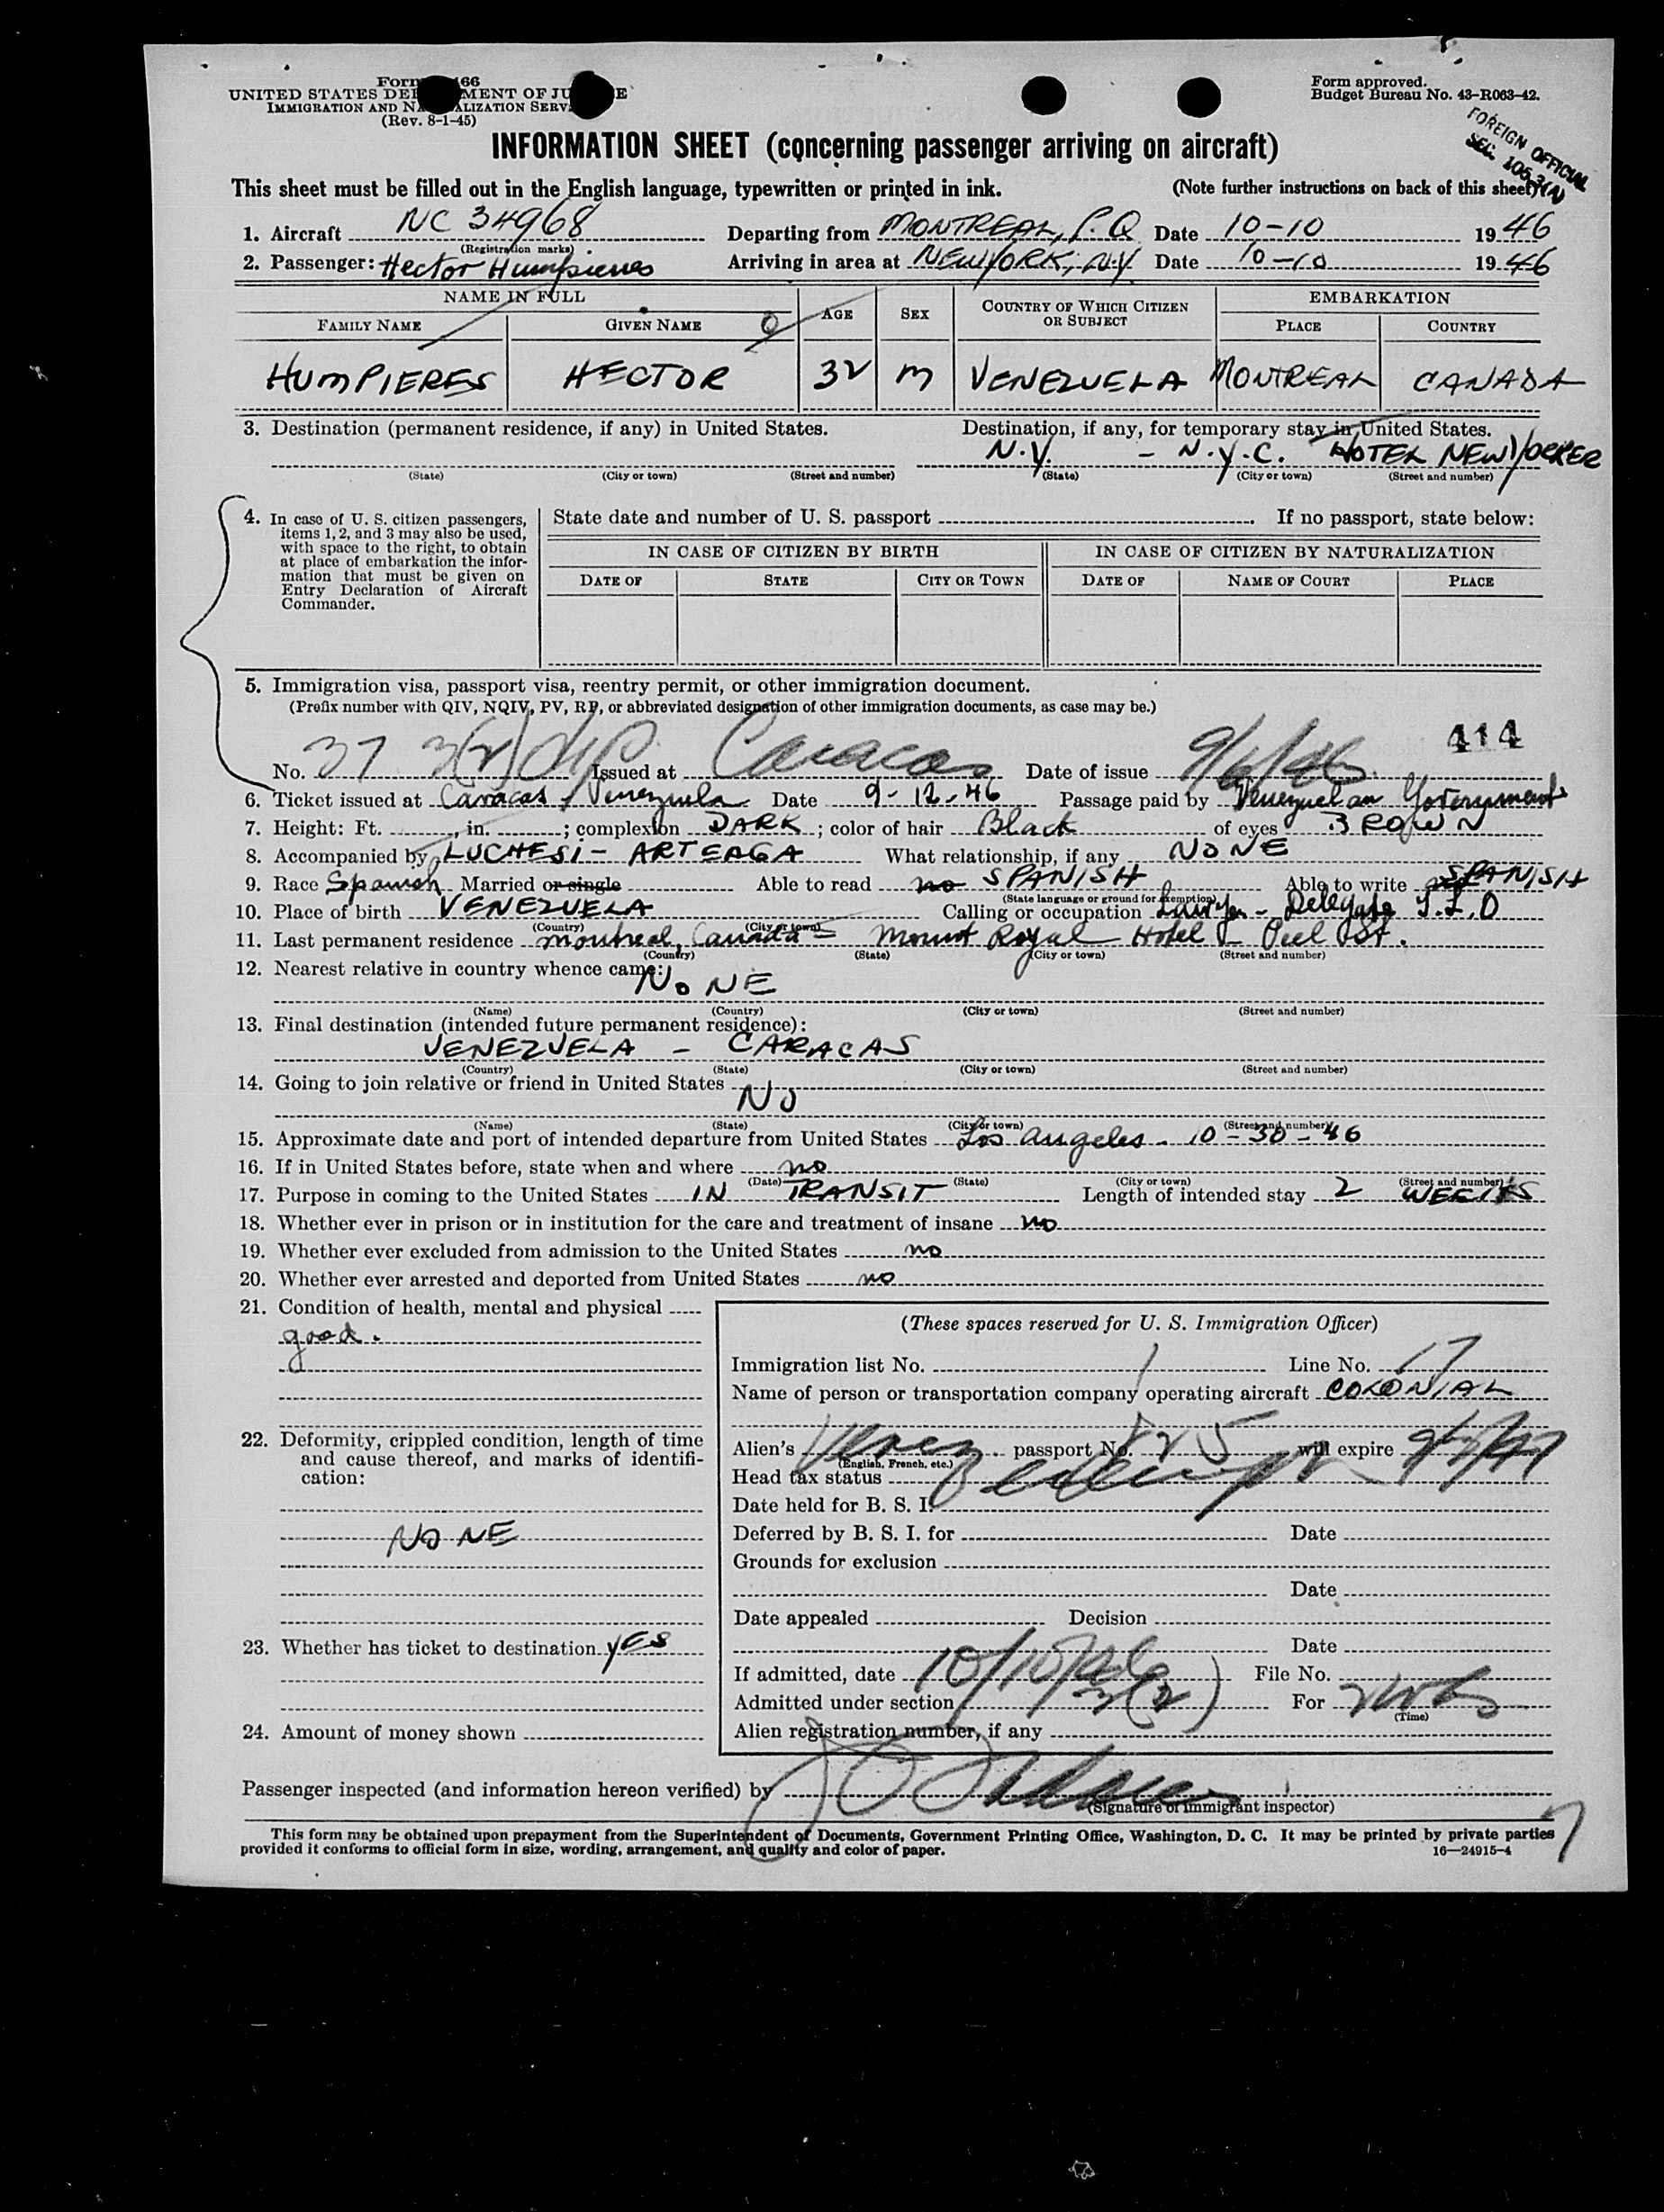 Form 66
UNITED STATES DEPARTMENT OF JUSTICE
IMMIGRATION AND NATURALIZATION SERVICE
(Rev. 8-1-45)
Form approved.
Budget Bureau No. 43-R063-42.
FOREIGN OFFICIAL
SEC. 105.3(A)
INFORMATION SHEET (concerning passenger arriving on aircraft)
This sheet must be filled out in the English language, typewritten or printed in ink. (Note further instructions on back of this sheet)
1. Aircraft NC 34968 Departing from MONTREAL, P.Q Date 10-10 1946
(Registration marks)
2. Passenger: Hector Humpieres Arriving in area at NEW YORK, N.Y. Date 10-10 1946
NAME IN FULL AGE SEX COUNTRY OF WHICH CITIZEN OR SUBJECT EMBARKATION
FAMILY NAME GIVEN NAME PLACE COUNTRY
HUMPIERES HECTOR 32 M VENEZUELA MONTREAL CANADA
3. Destination (permanent residence, if any) in United States. Destination, if any, for temporary stay in United States.
N.Y. - N.Y.C. HOTEL NEW YORKER
(State) (City or town) (Street and number) (State) (City or town) (Street and number)
4. In case of U. S. citizen passengers, items 1, 2, and 3 may also be used, with space to the right, to obtain at place of embarkation the information that must be given on Entry Declaration of Aircraft Commander.
State date and number of U. S. passport If no passport, state below:
IN CASE OF CITIZEN BY BIRTH IN CASE OF CITIZEN BY NATURALIZATION
DATE OF STATE CITY OR TOWN DATE OF NAME OF COURT PLACE
5. Immigration visa, passport visa, reentry permit, or other immigration document.
(Prefix number with QIV, NQIV, PV, RP, or abbreviated designation of other immigration documents, as case may be.)
414
No. 37 3(2) dip. Issued at Caracas Date of issue 9/6/46
6. Ticket issued at Caracas, Venezuela Date 9-12-46 Passage paid by Venezuelan Government
7. Height: Ft. , in. ; complexion DARK ; color of hair Black of eyes BROWN
8. Accompanied by LUCHESI - ARTEAGA What relationship, if any NONE
9. Race Spanish Married or single Able to read no SPANISH Able to write SPANISH
(State language or ground for exemption)
10. Place of birth VENEZUELA Calling or occupation Lawyer - Delegate I.L.O
(Country) (City or town)
11. Last permanent residence Montreal, Canada - Mount Royal Hotel - Peel St.
(Country) (State) (City or town) (Street and number)
12. Nearest relative in country whence came: NONE
(Name) (Country) (City or town) (Street and number)
13. Final destination (intended future permanent residence):
VENEZUELA - CARACAS
(Country) (State) (City or town) (Street and number)
14. Going to join relative or friend in United States
NO
(Name) (State) (City or town) (Street and number)
15. Approximate date and port of intended departure from United States Los Angeles - 10-30-46
16. If in United States before, state when and where no
(Date) (State) (City or town) (Street and number)
17. Purpose in coming to the United States IN TRANSIT Length of intended stay 2 WEEKS
18. Whether ever in prison or in institution for the care and treatment of insane no
19. Whether ever excluded from admission to the United States no
20. Whether ever arrested and deported from United States no
21. Condition of health, mental and physical
good.
22. Deformity, crippled condition, length of time and cause thereof, and marks of identification:
NONE
23. Whether has ticket to destination YES
24. Amount of money shown
(These spaces reserved for U. S. Immigration Officer)
Immigration list No. 1 Line No. 17
Name of person or transportation company operating aircraft COLONIAL
Alien's Venez passport No. 825 will expire
(English, French, etc.)
Head tax status exempt
Date held for B. S. I.
Deferred by B. S. I. for Date
Grounds for exclusion
Date
Date appealed Decision
Date
If admitted, date 10/10/46 File No.
Admitted under section 3(2) For 2 wks
(Time)
Alien registration number, if any
Passenger inspected (and information hereon verified) by
(Signature of immigrant inspector)
7
This form may be obtained upon prepayment from the Superintendent of Documents, Government Printing Office, Washington, D. C. It may be printed by private parties
provided it conforms to official form in size, wording, arrangement, and quality and color of paper. 16—24915-4